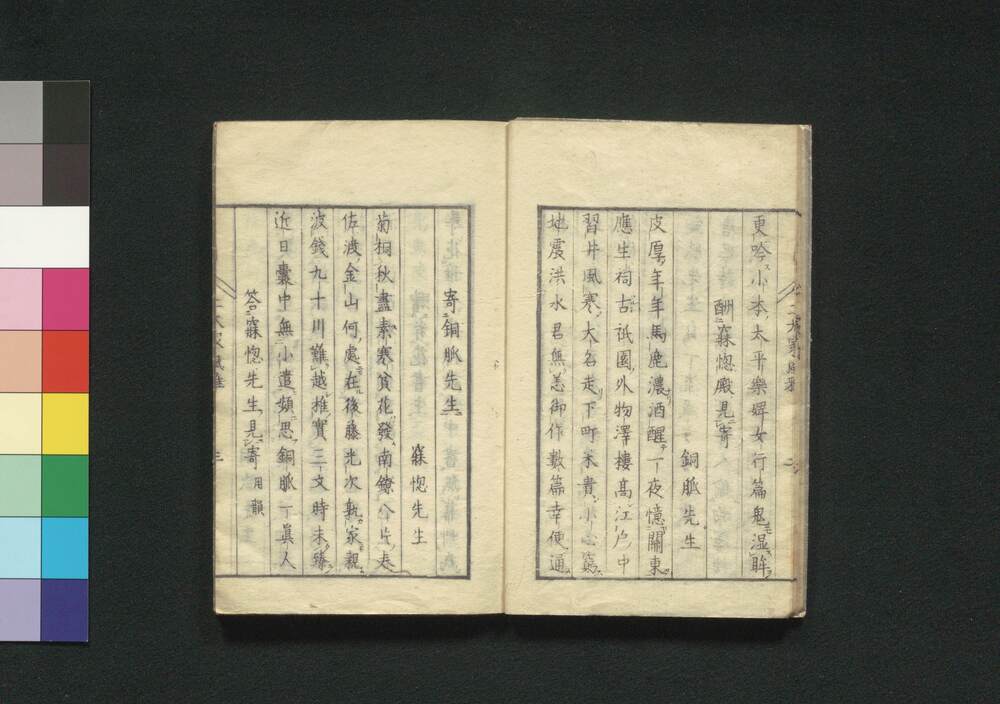 更吟小本太平樂婢女行篇鬼湿眸
酬寐惚殿見寄
銅脈先生
皮厚年年馬鹿濃酒醒一夜憶關東
應生祠古祇園外物澤樓高江戶中
習井風寒大名走下町米貴小心窮
地震洪水君無恙御作數篇幸便通
寄銅脈先生
寐惚先生
菊桐秋盡素寒貧花發南鐐八片春
佐渡金山何處在後藤光次孰家親
波錢九十川難越推實三文時未臻
近日嚢中無小遣頻思銅脈一眞人
答寐惚先生見寄用韻